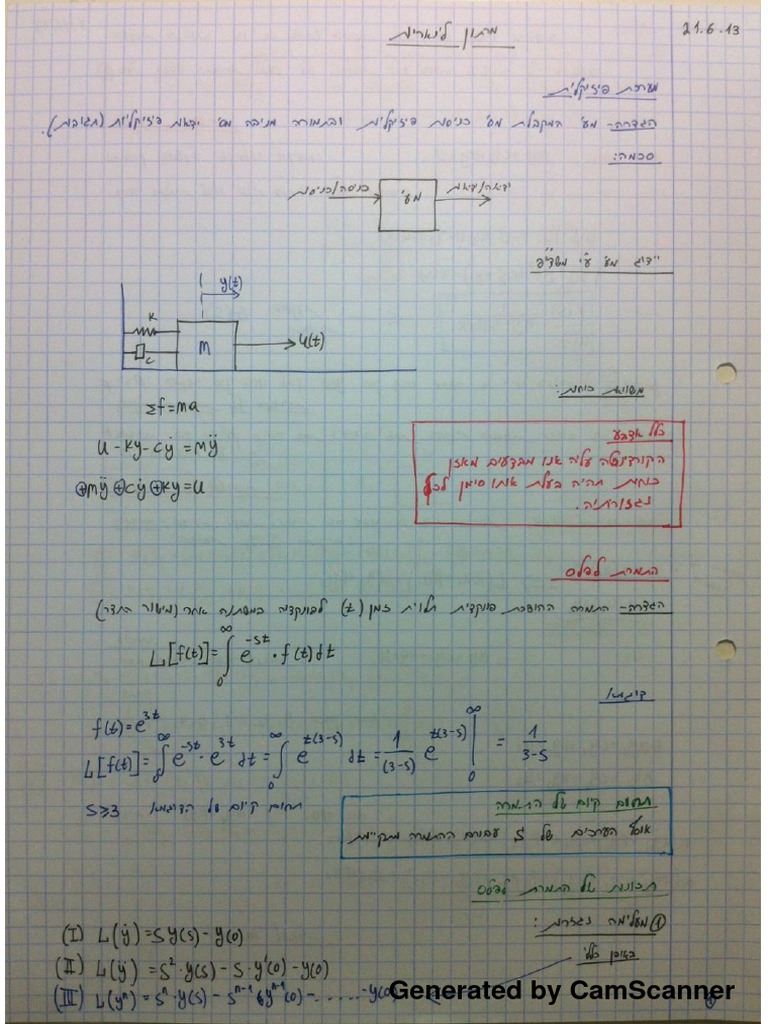 21.6.13
מרתון לינארית
מערכת פיזיקלית
הגדרה- מע' המקבלת מס' כניסות פיזיקליות ובתמורה מניבה מס' יציאות פיזיקליות (תגובות).
סכמה:
כניסה/כניסות
מע'
יציאה/יציאות
ייצוג מע' ע"י
y(t)
K
C
M
u(t)
משוואת כוחות:
Σf=ma
u - ky - cẏ = mÿ
⊕mÿ ⊕cẏ ⊕ky = u
כלל אצבע
הקורדינטה עליה אנו מבצעים מאזן
כוחות תהיה בעלת אותו סימן לכל
נגזרותיה.
התמרת לפלס
הגדרה- התמרה ההופכת פונקציה תלוית זמן (t) לפונקציה במשתנה אחר (מישור התדר)
L[f(t)] = ∫₀^∞ e^(-st) · f(t)dt
דוגמא
f(t) = e^(3t)
L[f(t)] = ∫₀^∞ e^(-st) · e^(3t) dt = ∫₀^∞ e^(t(3-s)) dt = 1/(3-s) e^(t(3-s)) |₀^∞ = 1/(3-s)
תחום קיום של התמרה
אוסף הערכים של S עבורם ההתמרה מתקיימת
S⩾3 תחום קיום של הדוגמא
תכונות של התמרת לפלס
① מעלימה נגזרות:
באופן כללי
(I) L(ẏ) = S y(s) - y(0)
(II) L(ÿ) = S² · y(s) - S · y'(0) - y(0)
(III) L(yⁿ) = Sⁿ · y(s) - Sⁿ⁻¹ yⁿ⁻¹(0) - ...... - y(0)
Generated by CamScanner